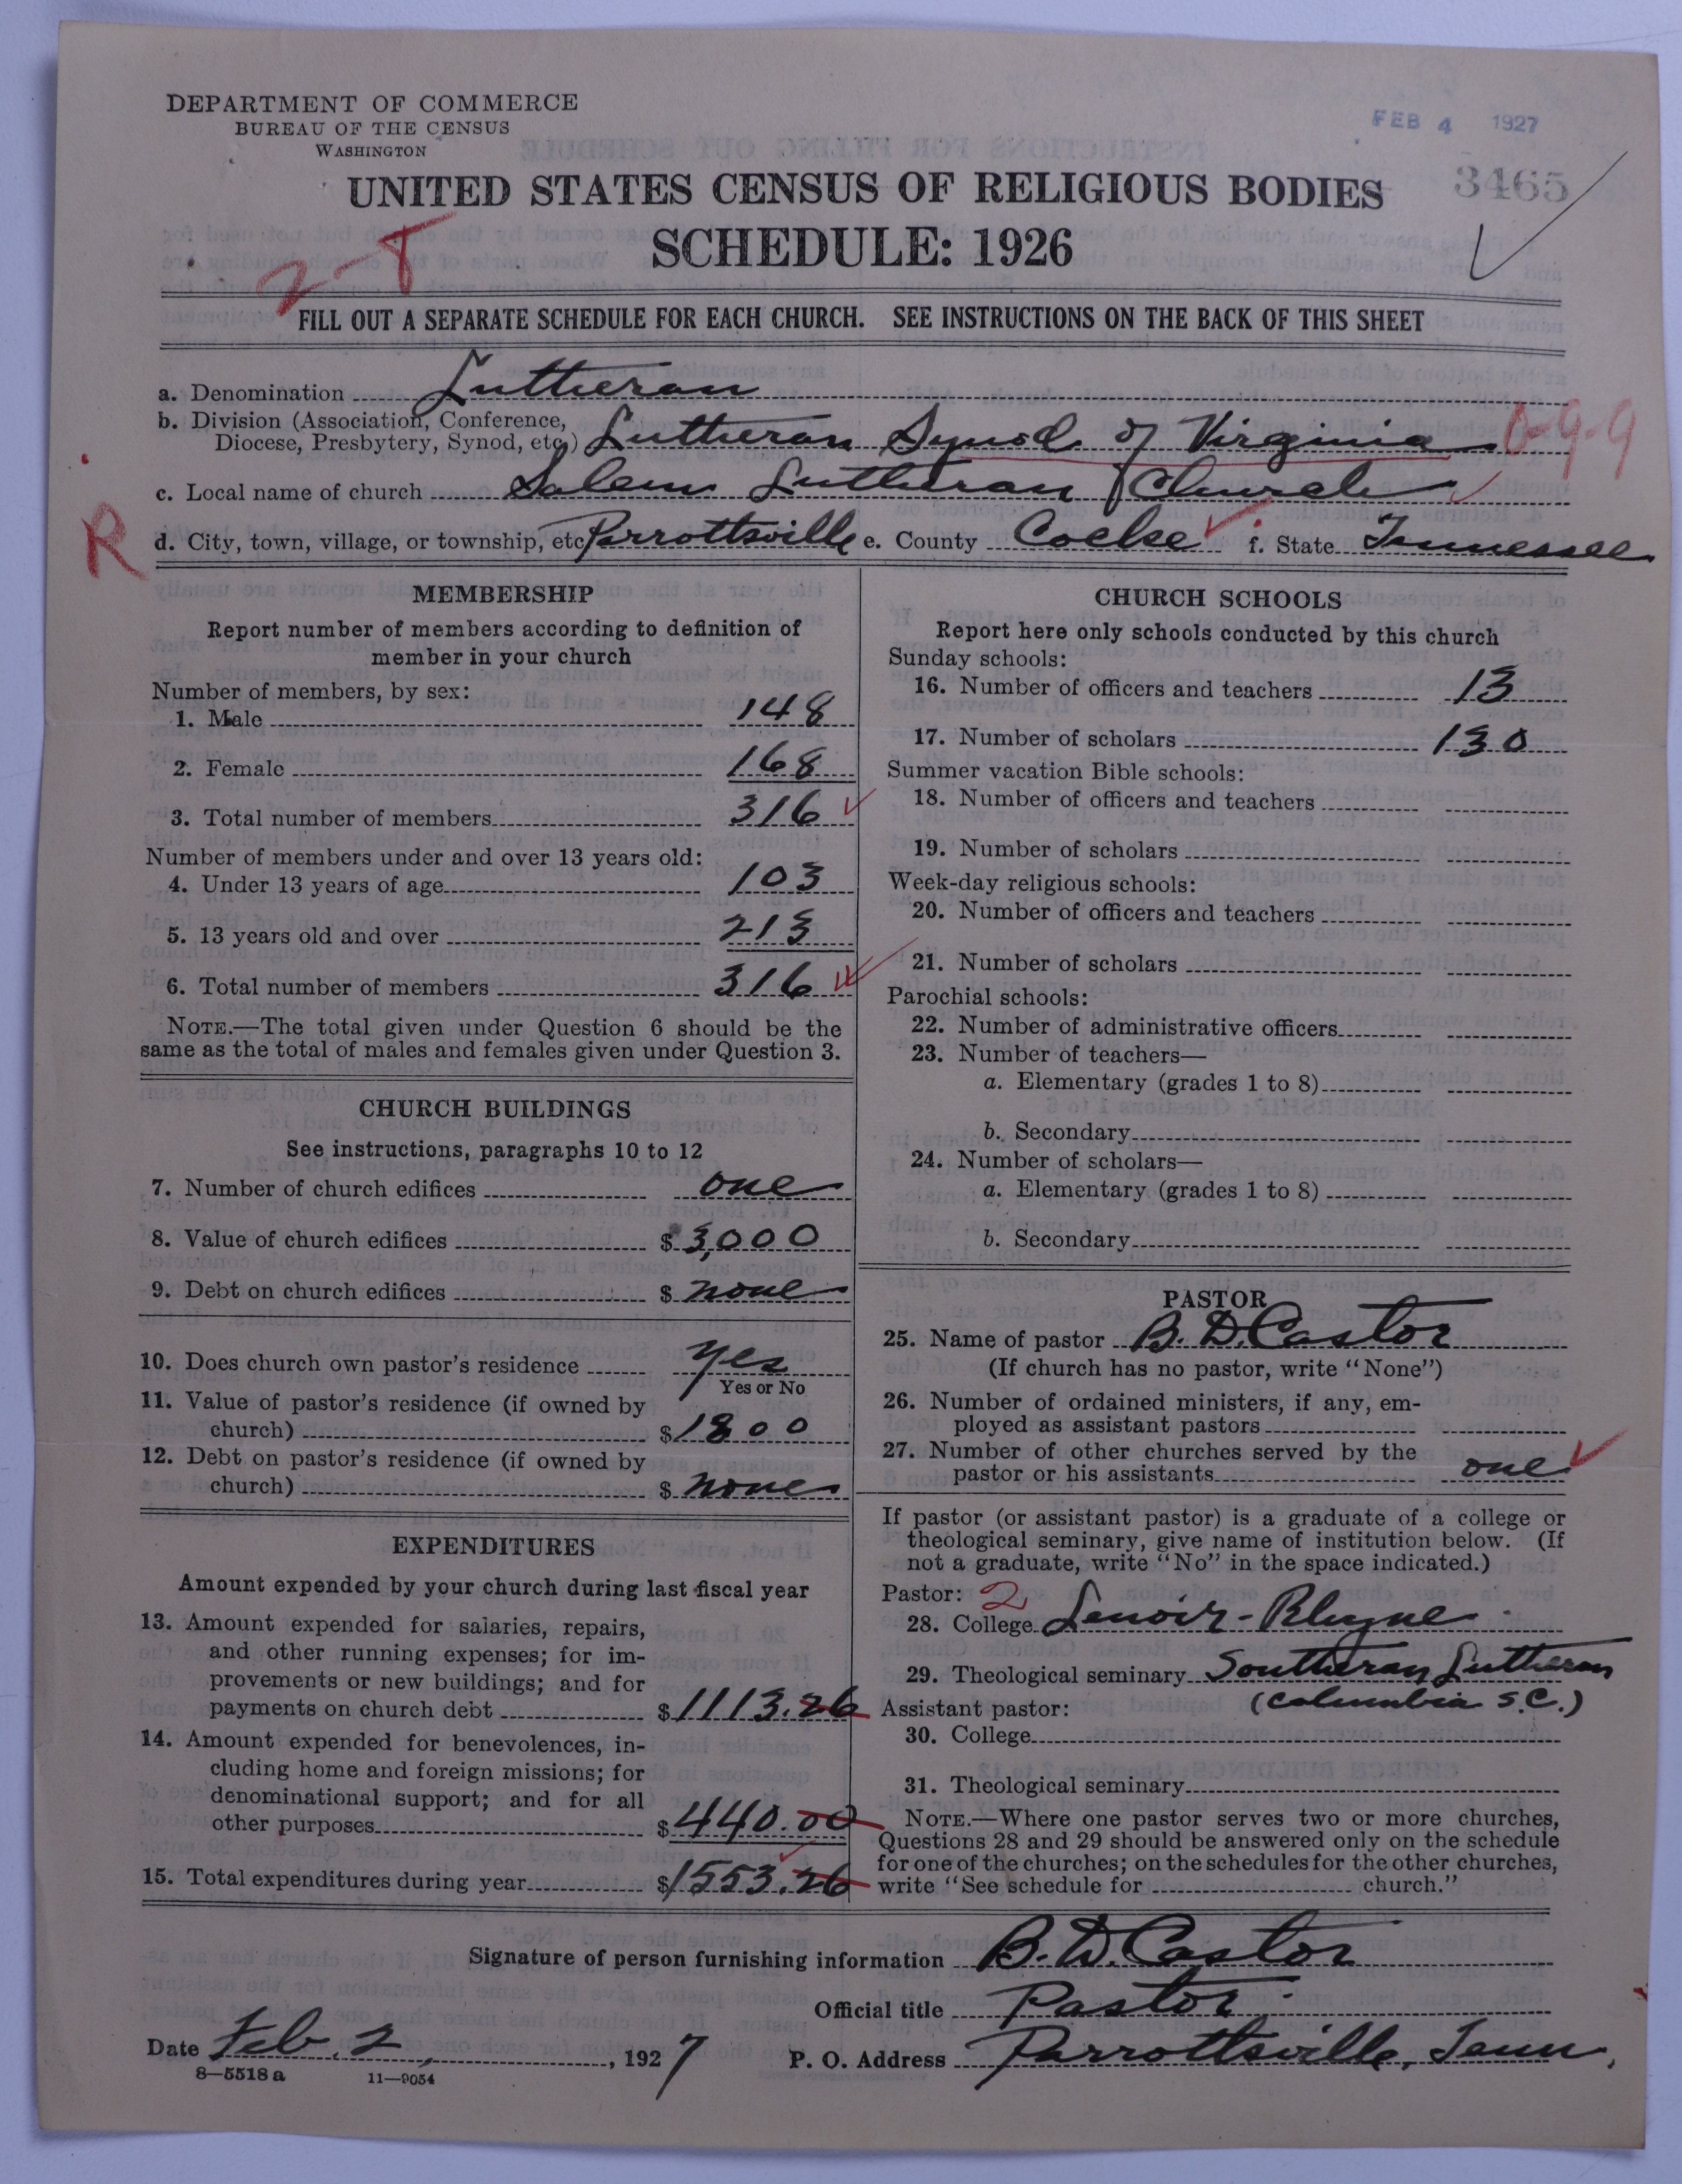 DEPARTMENT OF COMMERCE
BUREAU OF THE CENSUS
WASHINGTON
FEB 4 1927
3465
UNITED STATES CENSUS OF RELIGIOUS BODIES
SCHEDULE: 1926
2-8
FILL OUT A SEPARATE SCHEDULE FOR EACH CHURCH. SEE INSTRUCTIONS ON THE BACK OF THIS SHEET
a. Denomination Lutheran
b. Division (Association, Conference,
Diocese, Presbytery, Synod, etc.) Lutheran Synod of Virginia 0-9-9
c. Local name of church Salem Lutheran Church
R
d. City, town, village, or township, etc. Parrottsville e. County Cocke f. State Tennessee
MEMBERSHIP
Report number of members according to definition of
member in your church
Number of members, by sex:
1. Male 148
2. Female 168
3. Total number of members 316
Number of members under and over 13 years old:
4. Under 13 years of age 103
5. 13 years old and over 213
6. Total number of members 316
NOTE.—The total given under Question 6 should be the
same as the total of males and females given under Question 3.
CHURCH BUILDINGS
See instructions, paragraphs 10 to 12
7. Number of church edifices one
8. Value of church edifices $ 3,000
9. Debt on church edifices $ none
10. Does church own pastor's residence yes
Yes or No
11. Value of pastor's residence (if owned by
church) $ 1800
12. Debt on pastor's residence (if owned by
church) $ none
EXPENDITURES
Amount expended by your church during last fiscal year
13. Amount expended for salaries, repairs,
and other running expenses; for im-
provements or new buildings; and for
payments on church debt $ 1113.26
14. Amount expended for benevolences, in-
cluding home and foreign missions; for
denominational support; and for all
other purposes $ 440.00
15. Total expenditures during year $ 1553.26
CHURCH SCHOOLS
Report here only schools conducted by this church
Sunday schools:
16. Number of officers and teachers 13
17. Number of scholars 130
Summer vacation Bible schools:
18. Number of officers and teachers
19. Number of scholars
Week-day religious schools:
20. Number of officers and teachers
21. Number of scholars
Parochial schools:
22. Number of administrative officers
23. Number of teachers—
a. Elementary (grades 1 to 8)
b. Secondary
24. Number of scholars—
a. Elementary (grades 1 to 8)
b. Secondary
PASTOR
25. Name of pastor B. D. Castor
(If church has no pastor, write "None")
26. Number of ordained ministers, if any, em-
ployed as assistant pastors
27. Number of other churches served by the
pastor or his assistants one
If pastor (or assistant pastor) is a graduate of a college or
theological seminary, give name of institution below. (If
not a graduate, write "No" in the space indicated.)
Pastor: 2
28. College Lenoir-Rhyne
29. Theological seminary Southeran Lutheran
(Columbia S.C.)
Assistant pastor:
30. College
31. Theological seminary
NOTE.—Where one pastor serves two or more churches,
Questions 28 and 29 should be answered only on the schedule
for one of the churches; on the schedules for the other churches,
write "See schedule for church."
Signature of person furnishing information B. D. Castor
Official title Pastor
Date Feb. 2, 1927 P. O. Address Parrottsville, Tenn.
8—5518 a 11—9054